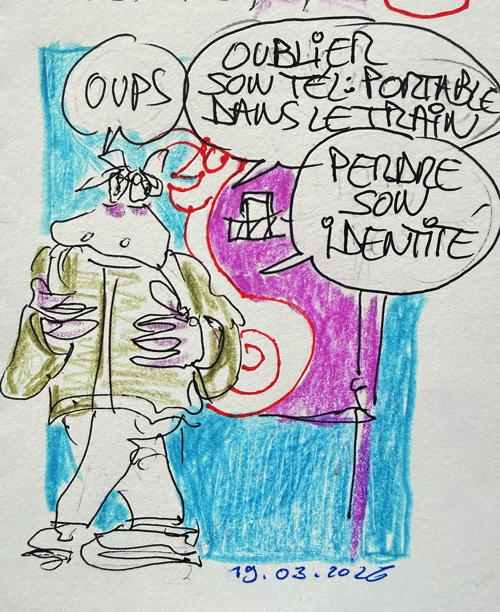 OUPS
OUBLIER
SON TEL: PORTABLE
DANS LE TRAIN
PERDRE
SON
iDENTiTÉ
19.03.2026